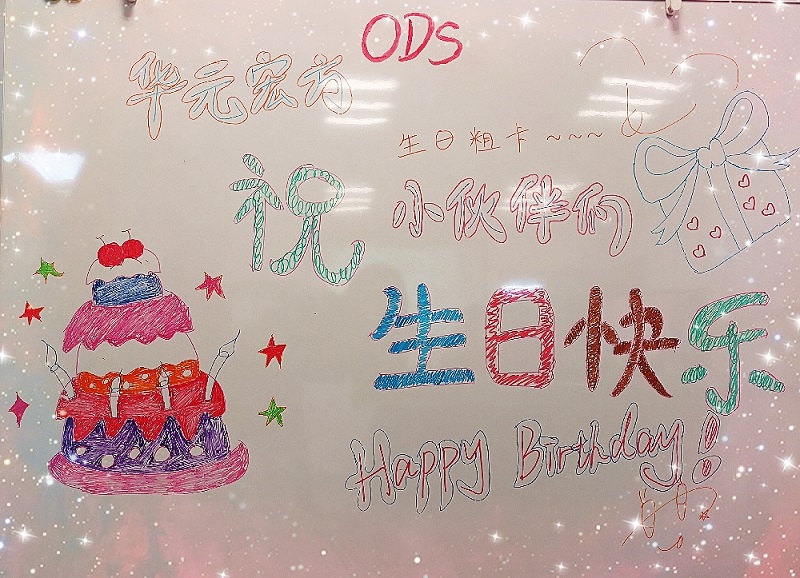 ODS
华元宏方
生日粗卡~~~
祝小伙伴们
生日快乐
Happy Birthday!